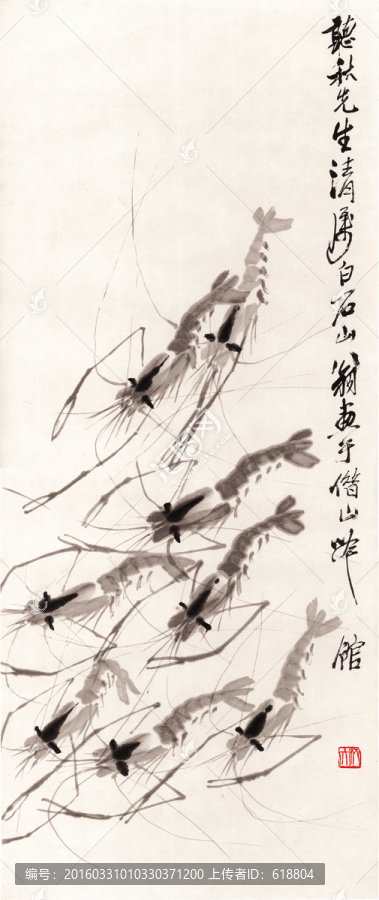 聽秋先生清屬白石山翁畫于借山吟館
编号：20160331010330371200 上传者ID：618804